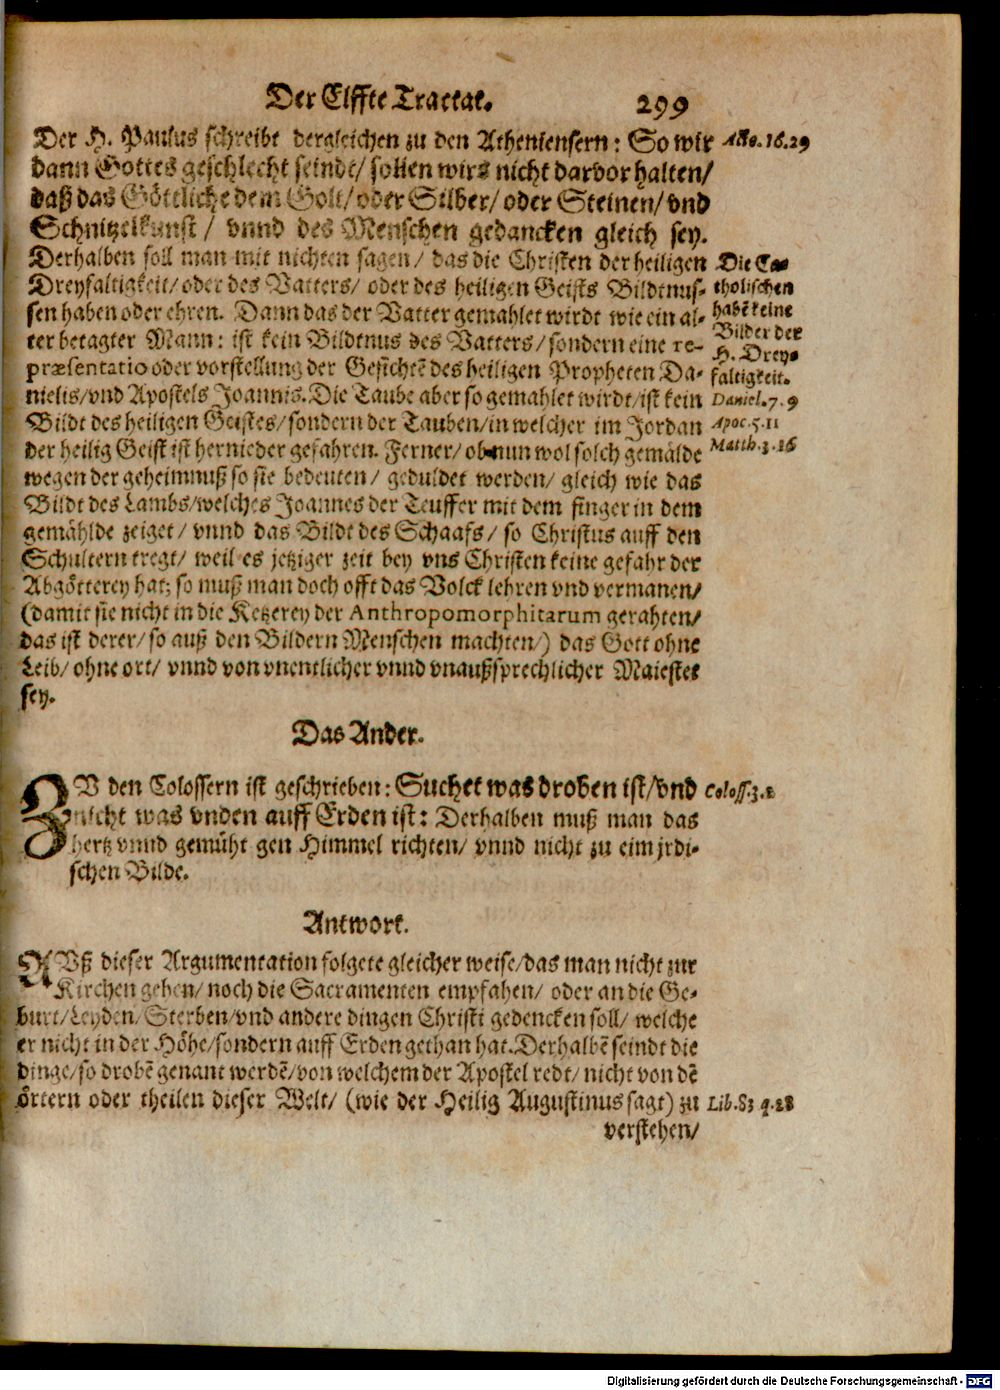 Der Elffte Tractat. 299
Der H. Paulus schreibt dergleichen zu den Atheniensern: So wir
dann Gottes geschlecht seindt/ sollen wirs nicht darvor halten/
daß das Göttliche dem Golt/ oder Silber/ oder Steinen/ vnd
Schnitzelkunst / vnnd des Menschen gedancken gleich sey.
Derhalben soll man mit nichten sagen/ das die Christen der heiligen
Dreyfaltigkeit/ oder des Vatters/ oder des heiligen Geists Bildtnus-
sen haben oder ehren. Dann das der Vatter gemahlet wirdt wie ein al-
ter betagter Mann: ist kein Bildtnus des Vatters/ sondern eine re-
præsentatio oder vorstellung der Gesichtē des heiligen Propheten Da-
nielis/ vnd Apostels Joannis. Die Taube aber so gemahlet wirdt/ ist kein
Bildt des heiligen Geistes/ sondern der Tauben/ in welcher im Jordan
der heilig Geist ist hernieder gefahren. Ferner/ ob nun wol solch gemälde
wegen der geheimnuß so sie bedeuten/ geduldet werden/ gleich wie das
Bildt des Lambs/ welches Joannes der Teuffer mit dem finger in dem
gemählde zeiget/ vnnd das Bildt des Schaafs/ so Christus auff den
Schultern tregt/ weil es jetziger zeit bey vns Christen keine gefahr der
Abgötterey hat; so muß man doch offt das Volck lehren vnd vermanen/
(damit sie nicht in die Ketzerey der Anthropomorphitarum gerahten/
das ist derer/ so auß den Bildern Menschen machten/) das Gott ohne
Leib/ ohne ort/ vnnd von vnentlicher vnnd vnaußsprechlicher Maiestet
sey.
Acto. 16. 29
Die Ca-
tholischen
habē keine
Bilder der
H. Drey-
faltigkeit.
Daniel. 7. 9
Apoc. 5. 11
Matth. 3. 16
Das Ander.
ZV den Colossern ist geschrieben: Suchet was droben ist/ vnd
nicht was vnden auff Erden ist: Derhalben muß man das
hertz vnnd gemüht gen Himmel richten/ vnnd nicht zu eim jrdi-
schen Bilde.
Coloss. 3. 1
Antwort.
AVß dieser Argumentation folgete gleicher weise/ das man nicht zur
Kirchen gehen/ noch die Sacramenten empfahen/ oder an die Ge-
burt/ Leyden/ Sterben/ vnd andere dingen Christi gedencken soll/ welche
er nicht in der Höhe/ sondern auff Erden gethan hat. Derhalbē seindt die
dinge/ so drobē genant werdē/ von welchem der Apostel redt/ nicht von dē
örtern oder theilen dieser Welt/ (wie der Heilig Augustinus sagt) zu
verstehen/
Lib. 83 q. 28
Digitalisierung gefördert durch die Deutsche Forschungsgemeinschaft - DFG